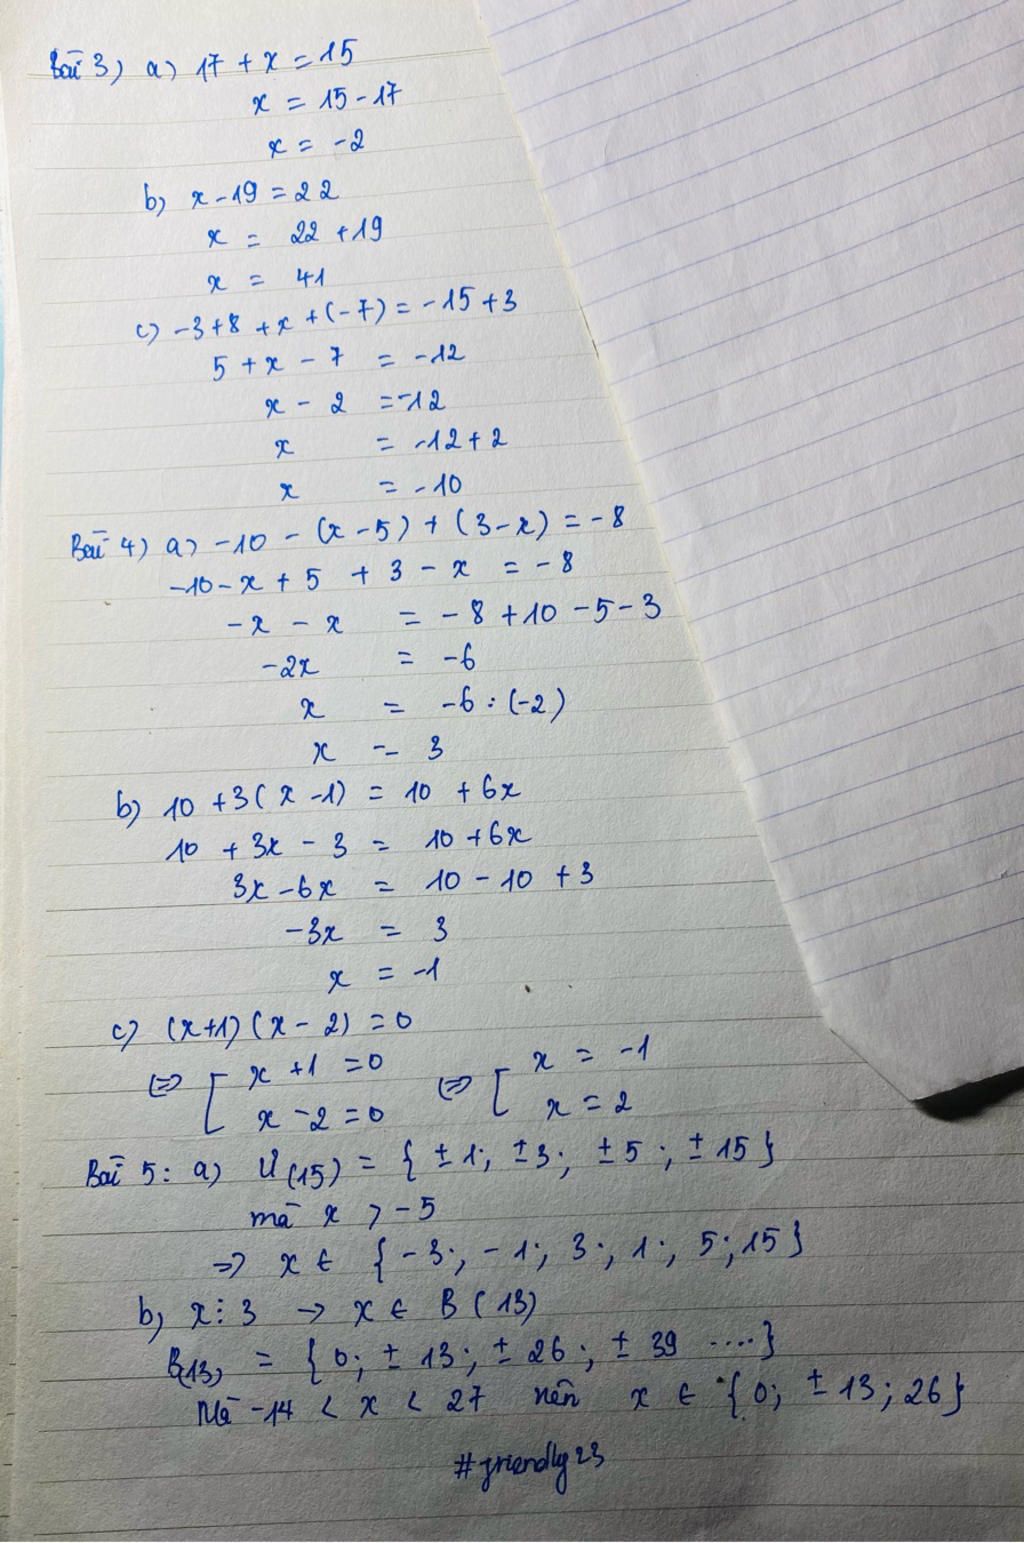 Bài 3) a) 17 + x = 15
x = 15 - 17
x = -2
b) x - 19 = 22
x = 22 + 19
x = 41
c) -3 + 8 + x + (-7) = -15 + 3
5 + x - 7 = -12
x - 2 = -12
x = -12 + 2
x = -10
Bài 4) a) -10 - (x - 5) + (3 - x) = -8
-10 - x + 5 + 3 - x = -8
-x - x = -8 + 10 - 5 - 3
-2x = -6
x = -6 : (-2)
x = 3
b) 10 + 3(x - 1) = 10 + 6x
10 + 3x - 3 = 10 + 6x
3x - 6x = 10 - 10 + 3
-3x = 3
x = -1
c) (x+1)(x - 2) = 0
⇔ [ x + 1 = 0 ⇔ [ x = -1
x - 2 = 0 x = 2
Bài 5: a) Ư(15) = { ±1; ±3; ±5; ±15 }
mà x > -5
=> x ∈ { -3; -1; 3; 1; 5; 15 }
b) x ⋮ 3 → x ∈ B(13)
B(13) = { 0; ±13; ±26; ±39 .... }
Mà -14 < x < 27 nên x ∈ { 0; ±13; 26 }
#friendly23